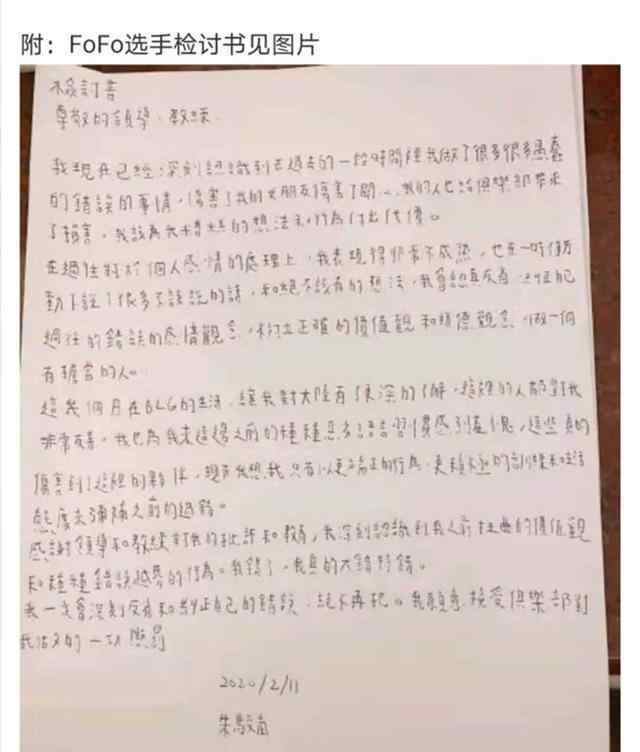 附：FoFo选手检讨书见图片
檢討書
尊敬的領導、教練
我現在已經深刻認識到在過去的一段時間裡我做了很多很多愚蠢
的錯誤的事情，傷害了我的女朋友傷害了關心我的人也給俱樂部帶來
了損害，我該為我糟糕的想法和行為付出代價。
在過往對於個人感情的處理上，我表現得非常不成熟，也在一時衝
動下說了很多不該說的話，和絕不該有的想法，我會認真反省自己
過往的錯誤的感情觀念，樹立正確的價值觀和道德觀念，做一個
有擔當的人。
這幾個月在BLG的生活，讓我對大陸有了更深的了解，這裡的人都對我
非常友善。我也為我來這邊之前的種種惡劣語言習慣感到羞愧，這些真的
傷害到了這裡的夥伴，現在我想我只有以更端正的行為、更積極的訓練和生活
態度去彌補之前的過錯。
感謝領導和教練對我的批評和教育，我深刻認識到我之前扭曲的價值觀
和種種錯誤越界的行為。我錯了，我真的大錯特錯。
我一定會深刻反省和糾正自己的錯誤，絕不再犯。我願意接受俱樂部對
我做出的一切懲罰
2020/2/11
朱駿